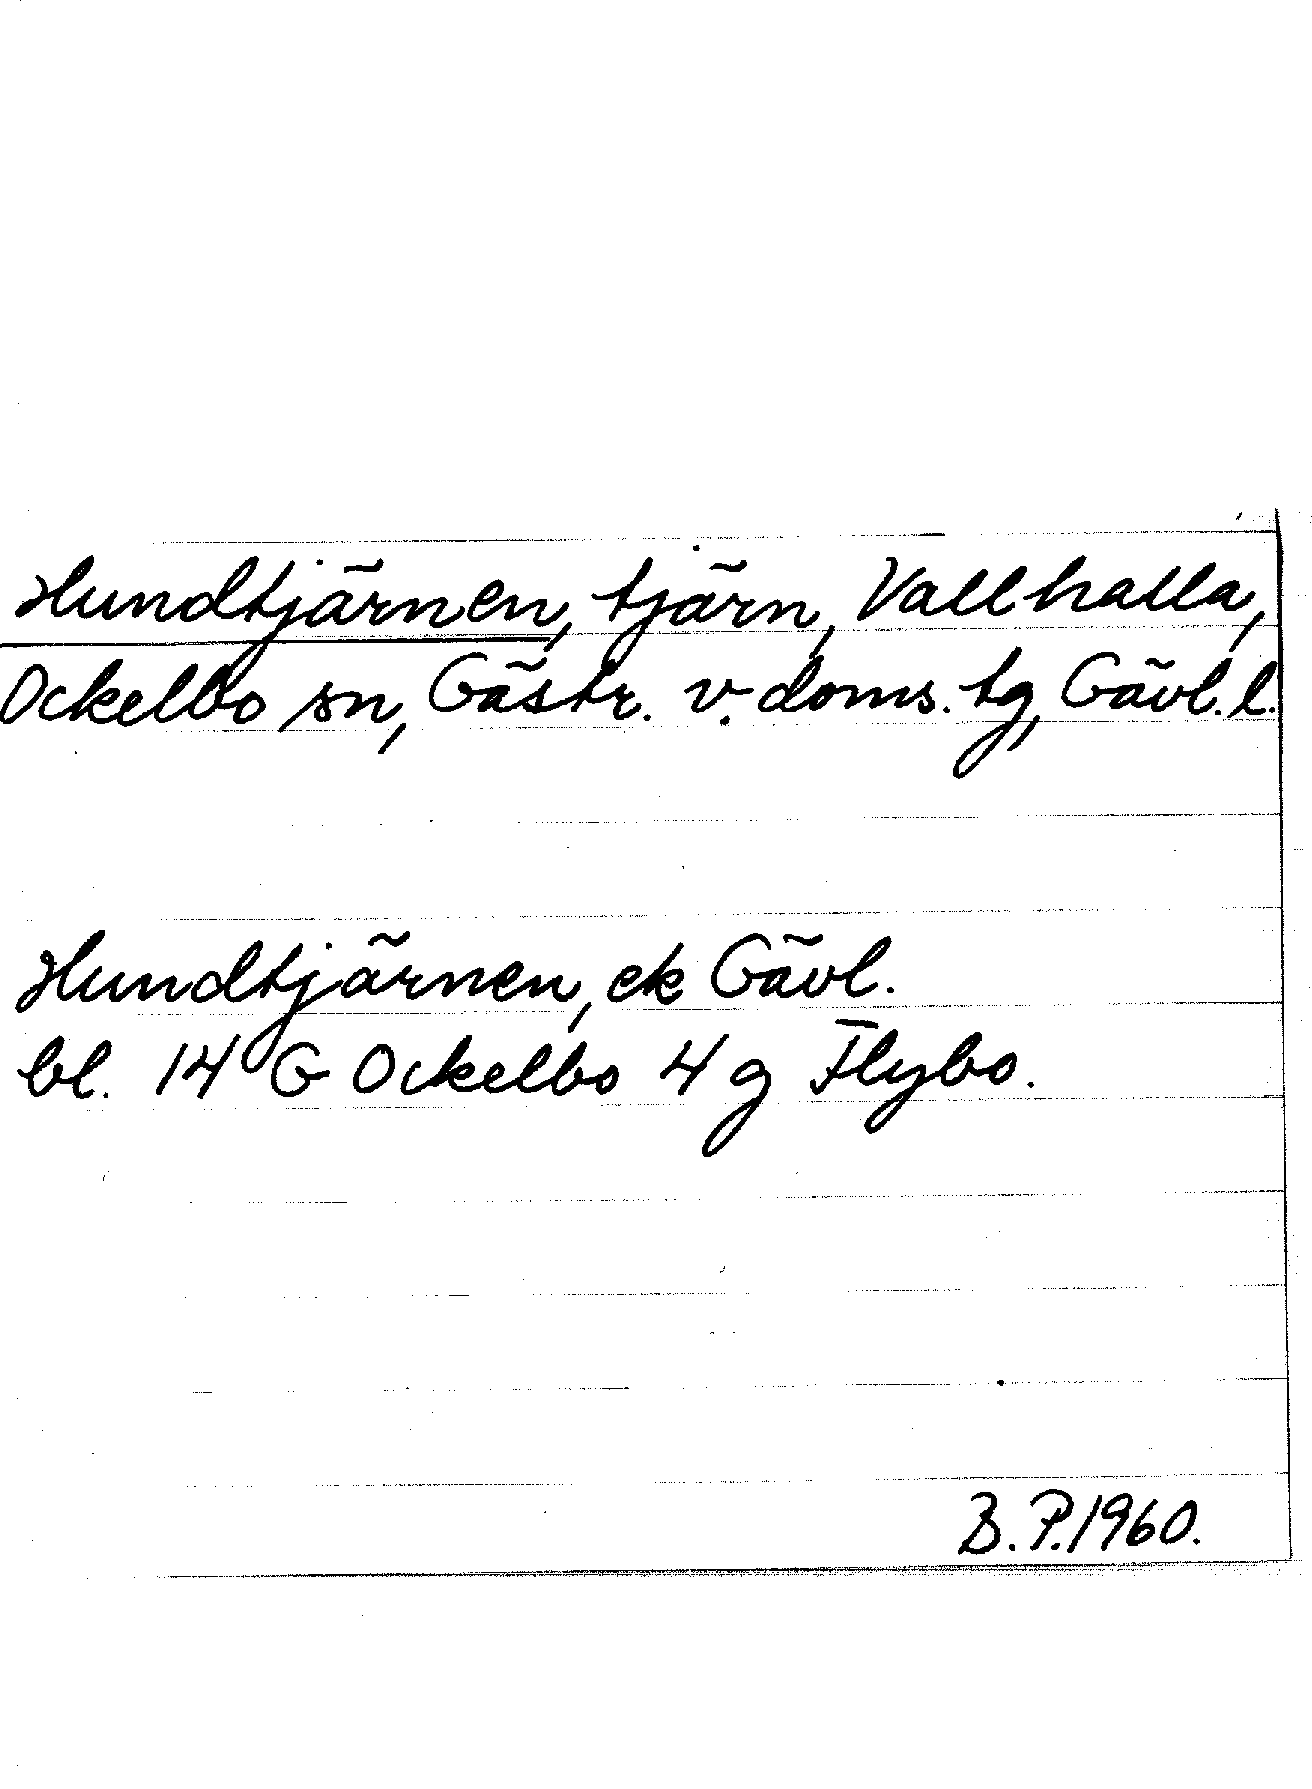 Hundtjärnen, tjärn, Vallhalla,
Ockelbo sn, Gästr. v. doms. tg, Gävl. l.
Hundtjärnen, ek Gävl.
bl. 14 G Ockelbo 4 g Flybo.
B. P. 1960.